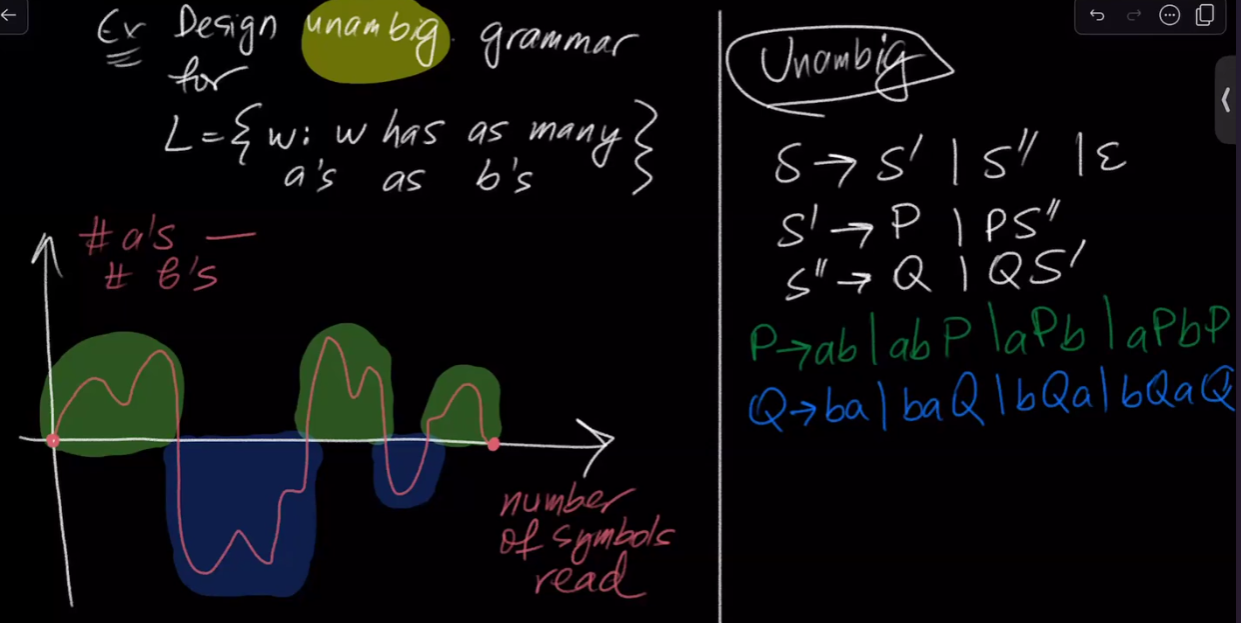 Ex Design unambig. grammar
for
L = { w: w has as many
a's as b's }
# a's —
# b's
number
of symbols
read
Unambig
S → S' | S'' | ε
S' → P | PS''
S'' → Q | QS'
P → ab | abP | aPb | aPbP
Q → ba | baQ | bQa | bQaQ